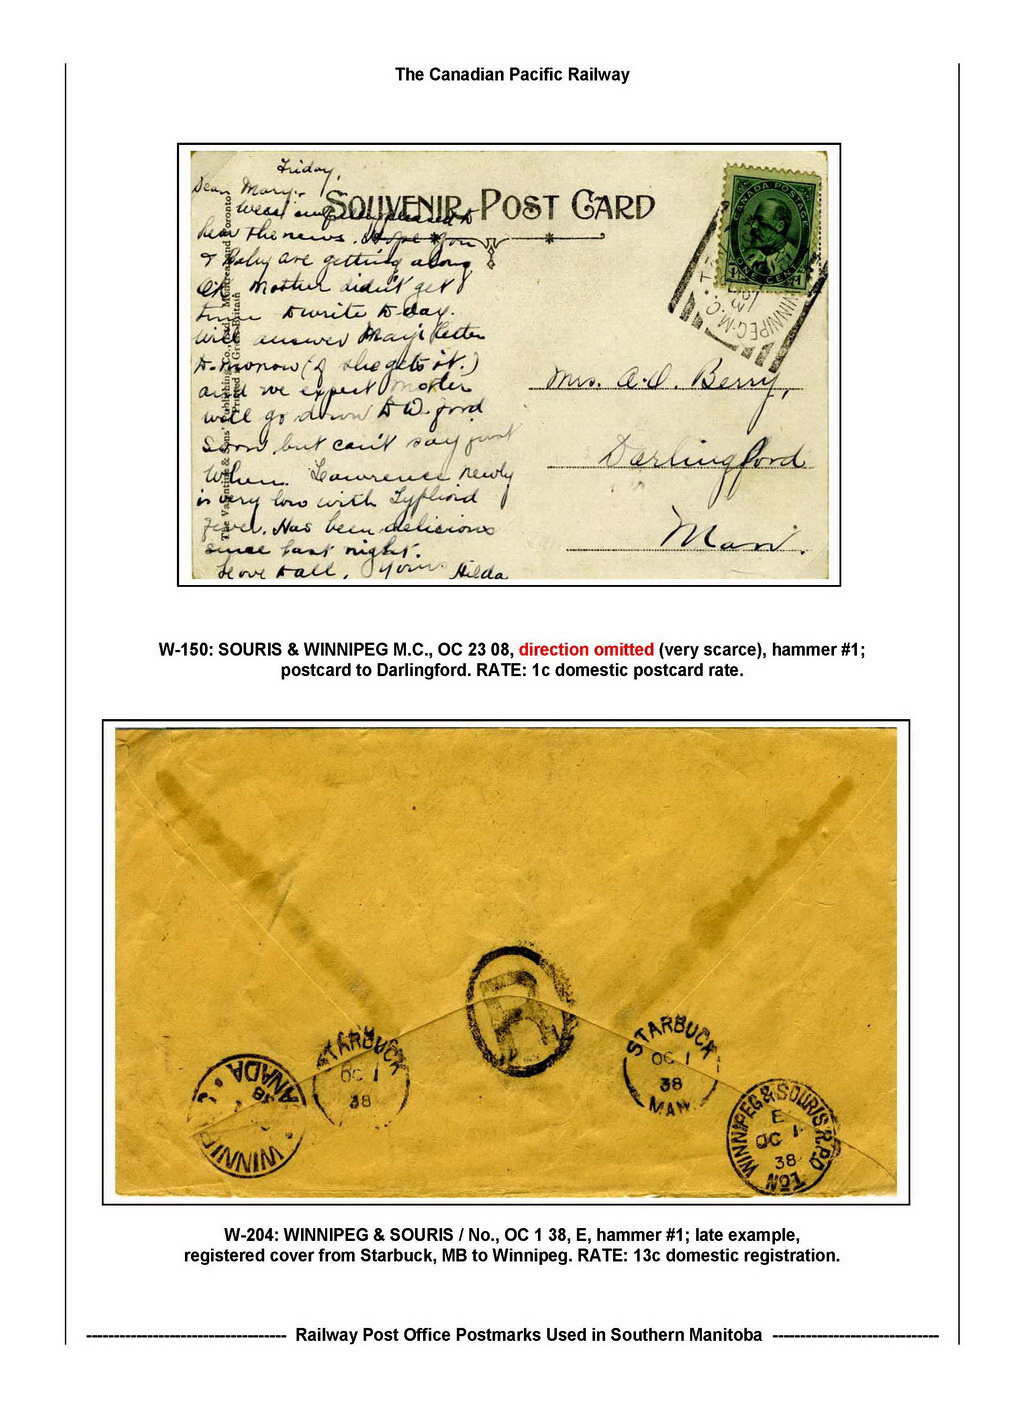 The Canadian Pacific Railway
Friday,
Dear Mary:
SOUVENIR POST CARD
Was awfully pleased to
hear the news. Hope you
& Baby are getting along
O.K. Mother didn't get
time to write to-day.
Will answer May's letter
to-morrow (if she gets it.)
and we expect Mother
will go down to W.ford
soon but can't say just
when. Lawrence Newly
is very low with Typhiord
Fever. Has been delicious
since last night.
Love to all, Yours Hilda
The Valentine & Sons' Publishing Co., Ltd., Montreal and Toronto
Printed in Great Britain
CANADA POSTAGE
ONE CENT
WINNIPEG M.C.
Mrs. A.O. Berry,
Darlingford
Man.
W-150: SOURIS & WINNIPEG M.C., OC 23 08, direction omitted (very scarce), hammer #1;
postcard to Darlingford. RATE: 1c domestic postcard rate.
R
STARBUCK
OC 1
38
STARBUCK
OC 1
38
MAN.
WINNIPEG & SOURIS R.P.O.
E
OC 1
38
No 1
W-204: WINNIPEG & SOURIS / No., OC 1 38, E, hammer #1; late example,
registered cover from Starbuck, MB to Winnipeg. RATE: 13c domestic registration.
Railway Post Office Postmarks Used in Southern Manitoba